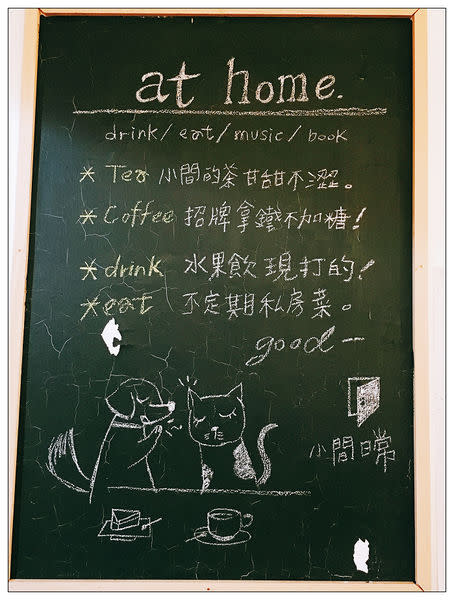 at home.
drink/eat/music/book
* Tea 小間的茶甘甜不澀。
* Coffee 招牌拿鐵不加糖!
* drink 水果飲現打的!
* eat 不定期私房菜。
good-
小間日常